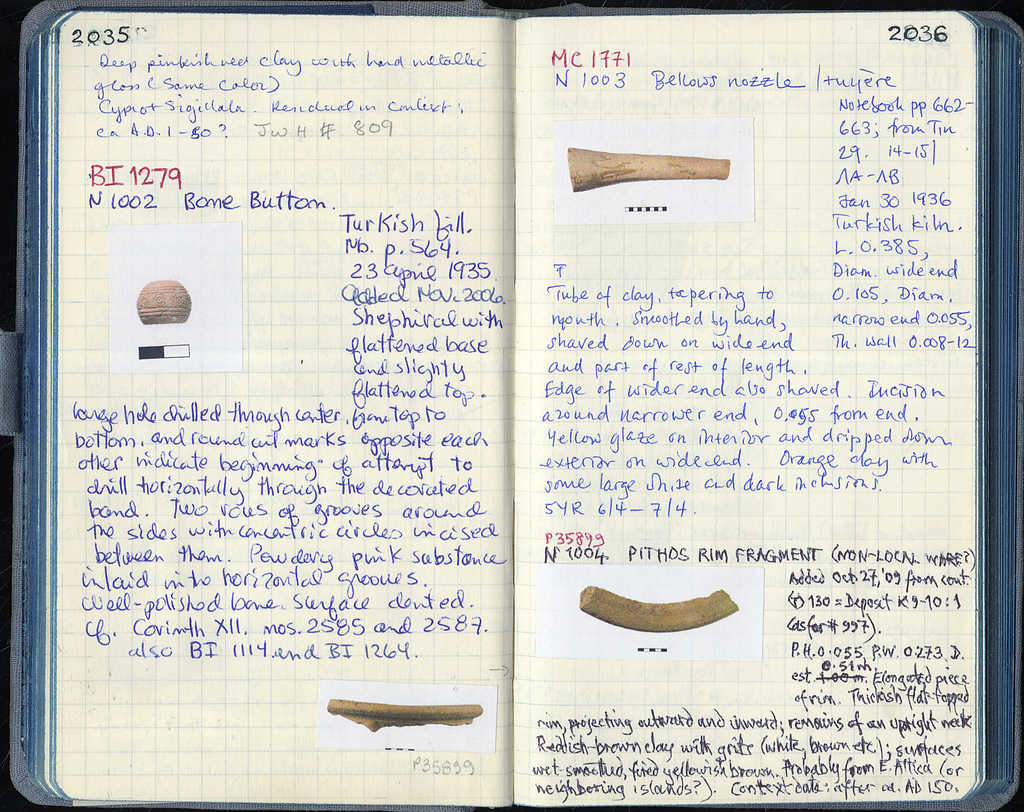 2035
Deep pinkish red clay with hard metallic
gloss (same color)
Cypriot Sigillata. Residual in context;
ca A.D. 1-50? JWH # 809
BI 1279
N 1002 Bone Button.
Turkish fill.
Nb. p. 564.
23 april 1935
Added Nov. 2006.
Shephiral with
flattened base
and slightly
flattened top.
large hole drilled through center, from top to
bottom, and round cut marks opposite each
other indicate beginning of attempt to
drill horizontally through the decorated
band. Two rows of grooves around
the sides with concentric circles incised
between them. Powdery pink substance
inlaid into horizontal grooves.
Well-polished bone. Surface dented.
Cf. Corinth XII. nos. 2585 and 2587.
also BI 1114 and BI 1264.
P35899
2036
MC 1771
N 1003 Bellows nozzle / tuyère
Notebook pp 662-
663; from Tin
29. 14-15/
ΛΑ-ΛΒ
Jan 30 1936
Turkish kiln.
L. 0.385,
Diam. wide end
0.105, Diam.
narrow end 0.055,
Th. wall 0.008-12
Tube of clay, tapering to
mouth. Smoothed by hand,
shaved down on wide end
and part of rest of length.
Edge of wider end also shaved. Incision
around narrower end, 0.055 from end.
Yellow glaze on interior and dripped down
exterior on wide end. Orange clay with
some large white and dark inclusions.
5YR 6/4-7/4.
P35899
N 1004 PITHOS RIM FRAGMENT (NON-LOCAL WARE?)
Added Oct 27, '09 from cont.
130 = Deposit K 9-10:1
(as for # 997).
P.H. 0.055, P.W. 0.273, D.
0.51m
est. 1.00 m. Elongated piece
of rim. Thickish flat-topped
rim, projecting outward and inward; remains of an upright neck
Reddish-brown clay with grits (white, brown etc.); surfaces
wet-smoothed, fired yellowish brown. Probably from E. Attica (or
neighboring islands?). Context date: after ca. AD 150.